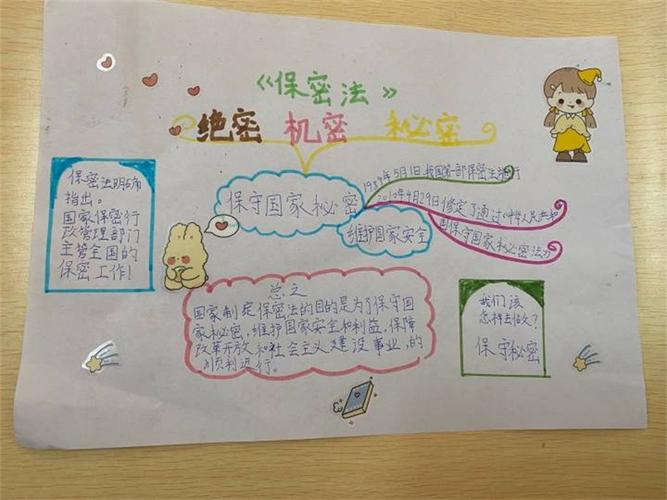 《保密法》
绝密 机密 秘密
保密法明确
指出。
国家保密行
政管理部门
主管全国的
保密工作!
保守国家秘密
维护国家安全
1989年5月1日,我国第一部保密法施行
2010年4月29日修定了通过《中华人民共和
国保守国家秘密法》
总之
国家制定保密法的目的是为了保守国
家秘密,维护国家安全和利益,保障
改革开放和社会主义建设事业,的
顺利进行。
我们该
怎样去做?
保守秘密